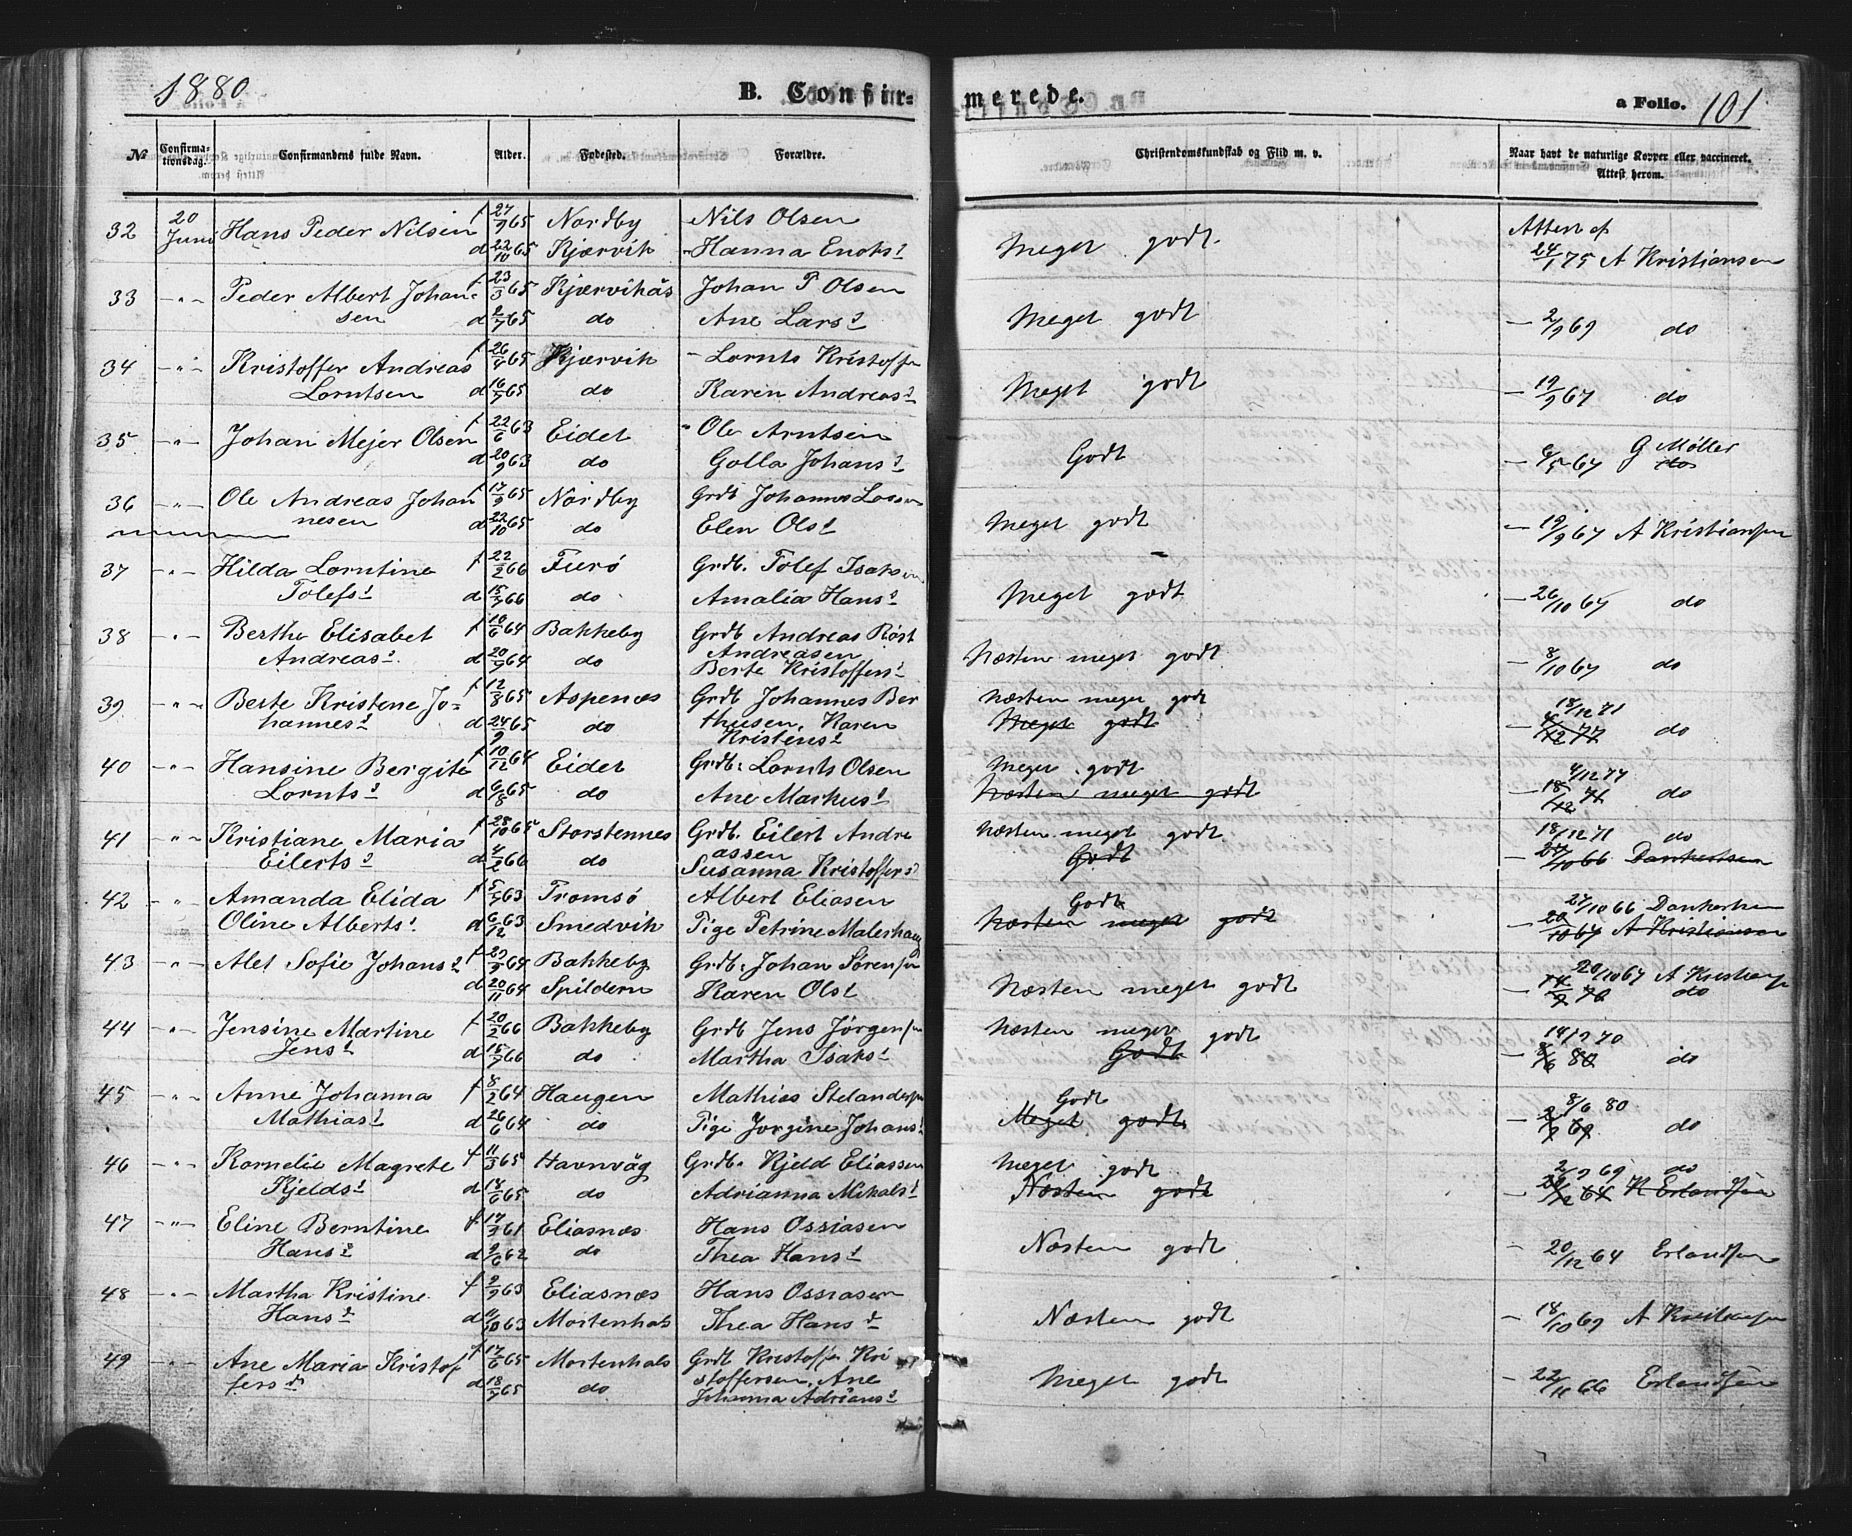 1880 B. Confirmerede. a Folio. 101
№ Confirmationsdag. Confirmandens fulde Navn. Alder. Fødested. Forældre. Christendomskundskab og Flid m. v. Naar havt de naturlige Kopper eller vaccineret. Attest herom.
32 20 Juni Hans Peder Nilsen f 27/9 65 Nordby Nils Olsen Meget godt Attest af
d 22/10 65 Kjærvik Hanna Enoks d 24/1 75 A Kristiansen
33 -"- Peder Albert Johan- f 23/3 65 Kjærvikås Johan P Olsen Meget godt
sen d 2/7 65 do Ane Lars d – 2/9 69 do
34 -"- Kristoffer Andreas f 26/4 65 Kjærvik Lornts Kristoffersen Meget godt
Lorntsen d 16/7 65 do Karen Andreas d – 19/9 67 do
35 -"- Johan Mejer Olsen f 22/6 63 Eidet Ole Arntsen Godt
d 20/9 63 do Golla Johans d – 6/5 67 G Møller
36 -"- Ole Andreas Johan f 17/9 65 Nordby Grdb Johannes Larsen Meget godt
nesen d 22/10 65 do Elen Ols d – 19/9 67 A Kristiansen
37 -"- Hilda Lorntine f 22/2 66 Furø Grdb. Tolef Isaksen Meget godt
Tolefs d d 15/7 66 do Amalia Hans d – 26/10 67 do
38 -"- Berthe Elisabet f 10/6 64 Bakkeby Grdb Andreas Røst
Andreas d d 20/9 64 do Andreasen Næsten meget godt
Berte Kristoffers d – 8/10 67 do
39 -"- Berte Kristene Jo- f 12/8 65 Aspenæs Grdb Johannes Ber Næsten meget godt 18/12 71
hannes d d 24/9 65 do thusen, Karen Meget godt – 4/12 77 do
Kristens d
40 -"- Hansine Bergite f 10/12 64 Eidet Grdb. Lornts Olsen Meget godt 4/12 77
Lornts d d 6/8 65 do Ane Markus d Næsten meget godt – 18/12 71 do
41 -"- Kristiane Maria f 28/10 65 Storstennes Grdb. Eilert Andre Næsten meget godt 18/12 71 do
Eilerts d d 4/2 66 do assen Godt – 27/10 66 Dankertsen
Susanna Kristoffers d
42 -"- Amanda Elida f 5/7 63 Tromsø Albert Eliasen Godt 27/10 66 Dankertsen
Oline Alberts d d 6/12 63 Smedvik Pige Petrine Malerhaug Næsten meget godt – 20/10 67 A Kristiansen
43 -"- Alet Sofie Johans d f 29/9 64 Bakkeby Grdb. Johan Sørensen 20/10 67 A Kristiansen
d 20/11 64 Spildern Karen Ols d Næsten meget godt – 14/9 70 do
44 -"- Jensine Martine f 20/2 66 Bakkeby Grdb Jens Jørgensen Næsten meget godt 14/9 70
Jens d d 15/7 66 do Martha Isaks d Godt – 8/6 80 do
45 -"- Anne Johanna f 8/2 64 Haugen Mathias Godt 8/6 80
Mathias d d 26/6 64 do Pige Jørgine Johans d Meget godt – 2/9 69 do
46 -"- Kornelie Magrete f 11/3 65 Havnvåg Grdb. Kjeld Eliassen Meget godt 2/9 69 do
Kjelds d d 18/6 65 do Adrianna Mikals d Næsten godt – 20/12 64 K Erlandsen
47 -"- Eline Berntine f 17/3 61 Eliasnæs Hans Ossiasen Næsten godt
Hans d d 9/6 62 do Thea Hans d – 20/12 64 Erlandsen
48 -"- Martha Kristine f 2/9 63 Eliasnæs Hans Ossiasen Næsten godt
Hans d d 11/10 63 Mortenhals Thea Hans d – 18/10 69 A Kristiansen
49 -"- Ane Maria Kristof f 17/6 65 Mortenhals Grdb Kristoffer Kri Meget godt
fers d d 18/9 65 do stoffersen, Ane – 22/11 66 Erlandsen
Johanna Adrians d